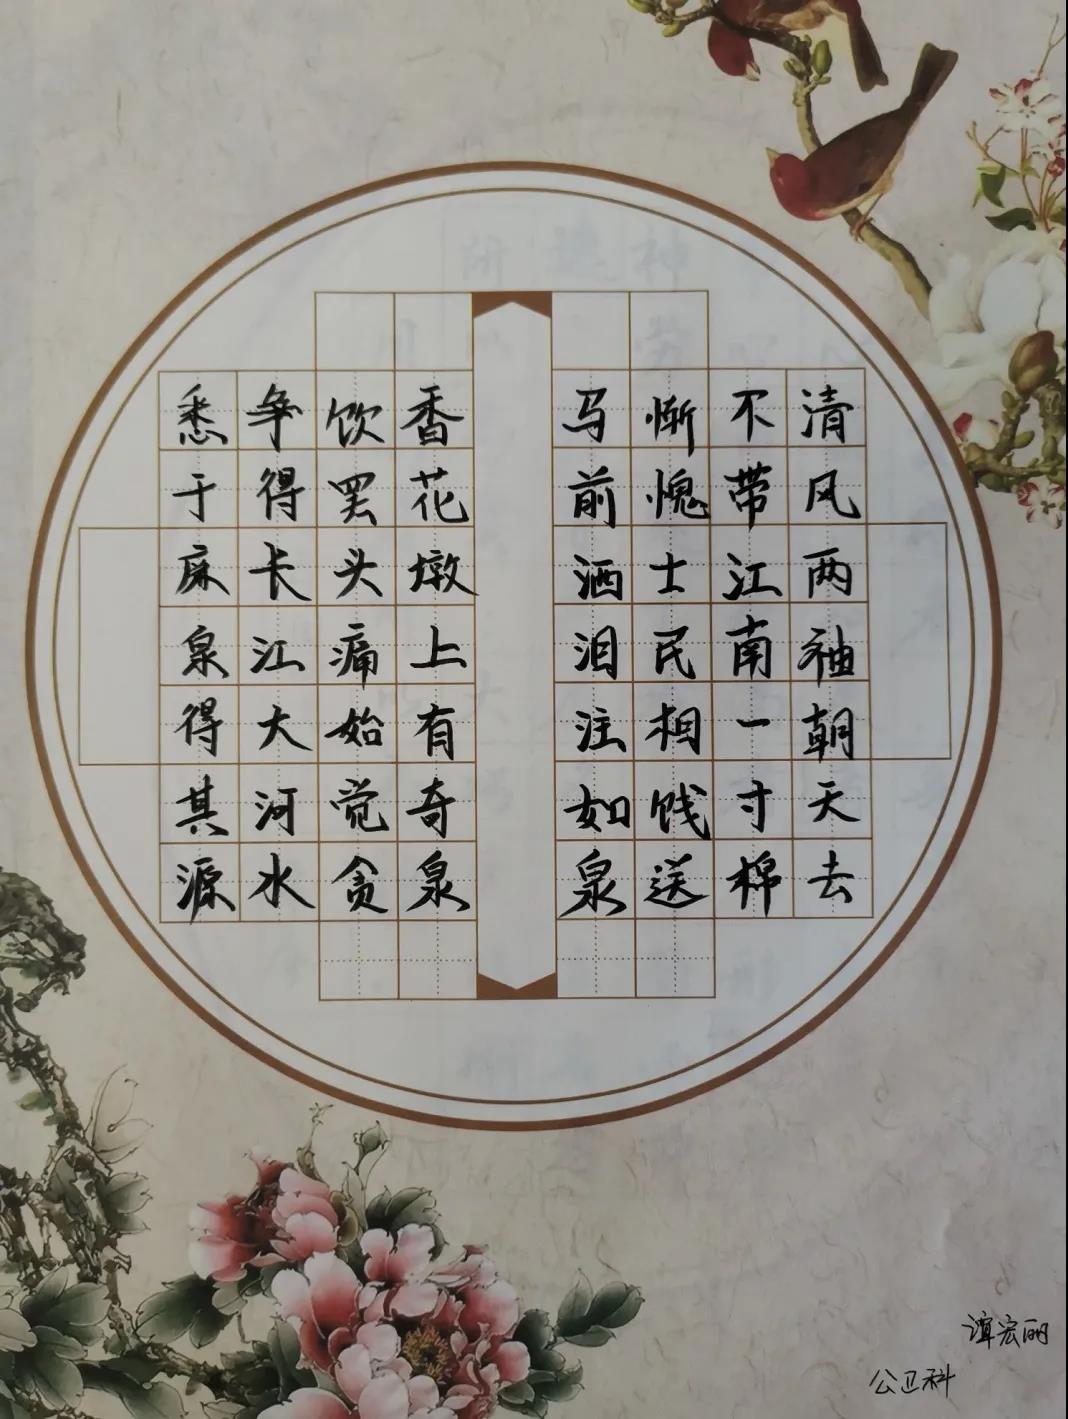 清风两袖朝天去
不带江南一寸棉
惭愧士民相饯送
马前洒泪注如泉
香花墩上有奇泉
饮罢头痛始觉贪
争得长江大河水
悉于麻泉得其源
谭宏丽
公卫科